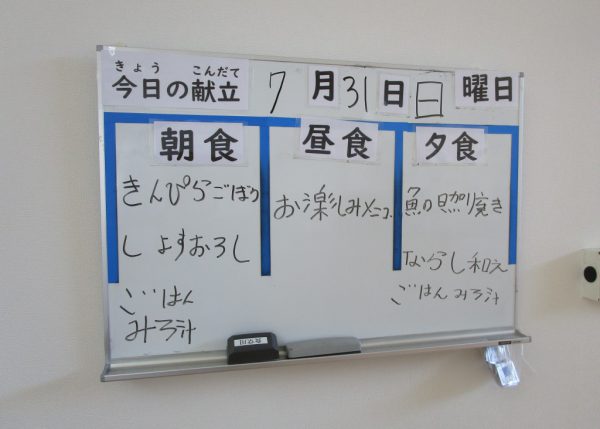 きょう こんだて
今日の献立 7月31日日曜日
朝食
きんぴらごぼう
しょすおろし
ごはん
みそ汁
昼食
お楽しみメニュ
夕食
魚の照り焼き
からし和え
ごはんみそ汁